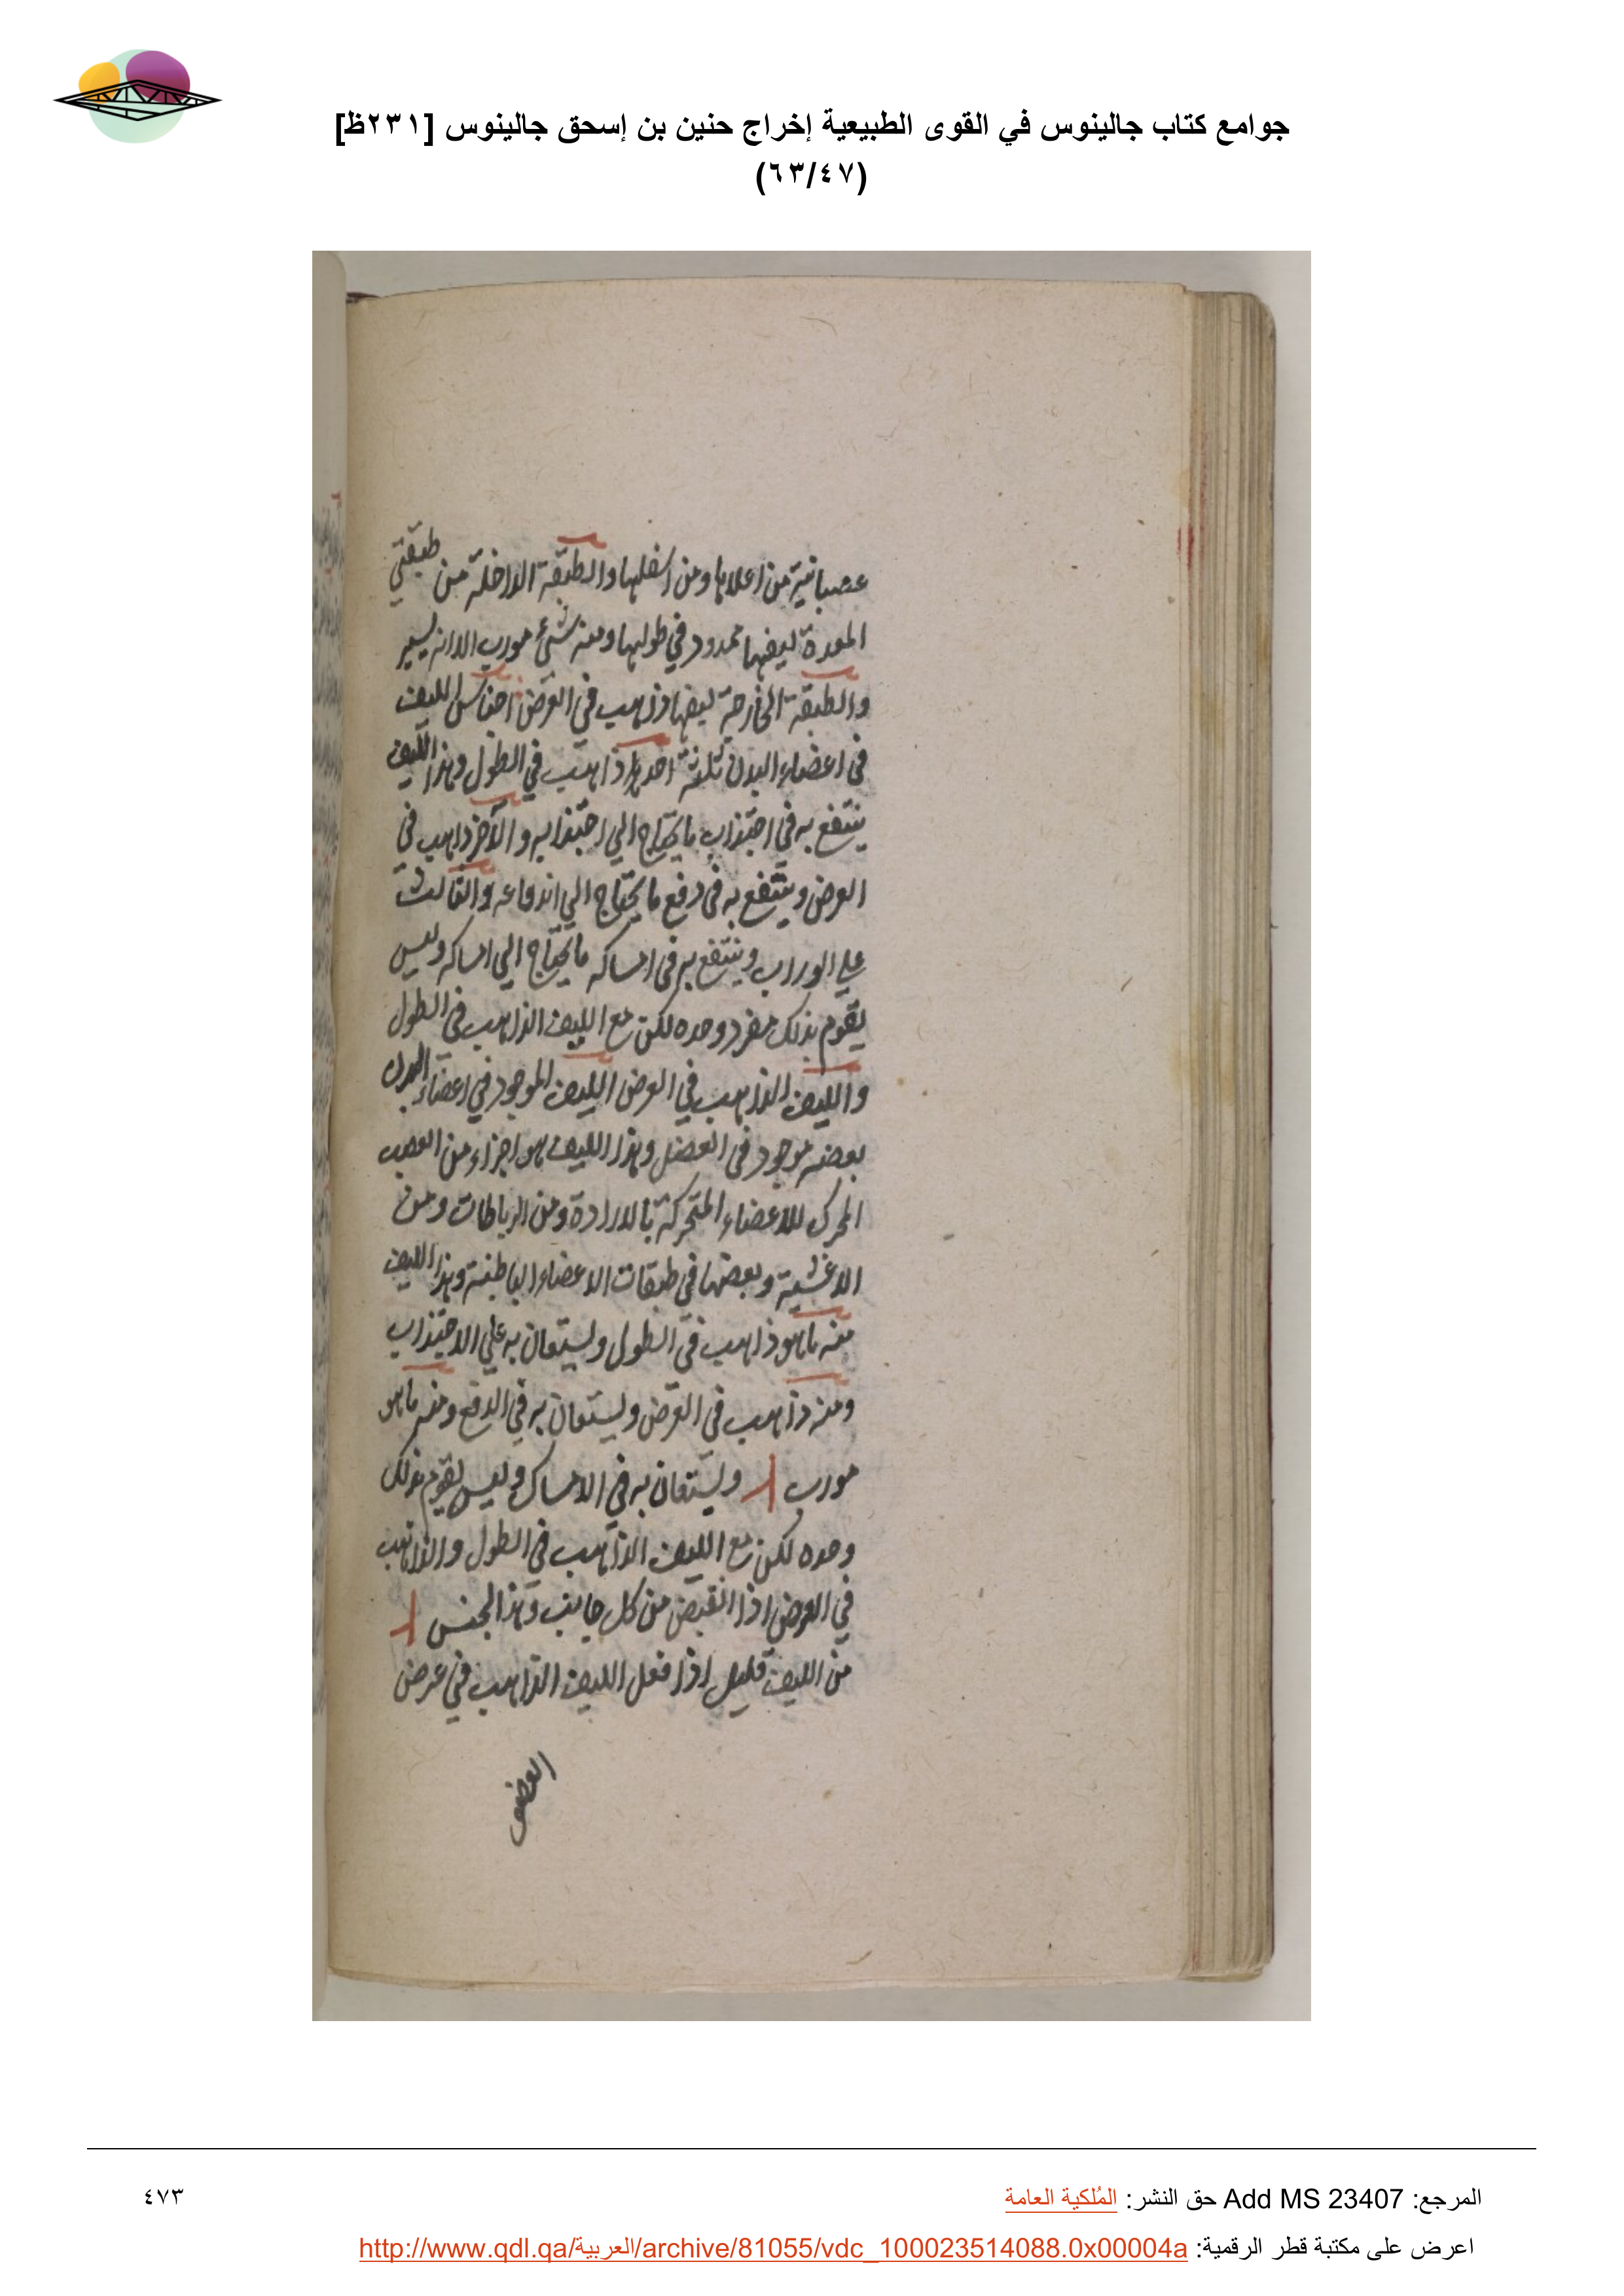 جوامع كتاب جالينوس في القوى الطبيعية إخراج حنين بن إسحق جالينوس [٢٣١ظ]
(٦٣/٤٧)
عصبانية من اعلاها ومن اسفلها والطبقة الداخلة من طبقتي
المعدة ليفها ممدود في طولها ومنه شيء مورب الا انه يسير
والطبقة الخارجة ليفها ذاهب في العرض اجناس الليف
في اعضاء البدن ثلثة احدها ذاهب في الطول وهذا الليف
ينتفع به في اجتذاب ما يحتاج الي اجتذابه والآخر ذاهب في
العرض وينتفع به في دفع ما يحتاج الي اندفاعه والثالث
علي الوراب وينتفع به في امساكه ما يحتاج الي امساكه وليس
يقوم بذلك مفرد وحده لكن مع الليف الذاهب في الطول
والليف الذاهب في العرض الليف الموجود في اعضاء البدن
بعضه موجود في العضل وهذا الليف هو اجزاء من العصب
المحرك للاعضاء المتحركة بالارادة ومن الرباطات ومن
الاغشية وبعضها في طبقات الاعضاء الباطنة وهذا الليف
منه ما هو ذاهب في الطول ويستعان به علي الاجتذاب
ومنه ذاهب في العرض ويستعان به في الدفع ومنه ما هو
مورب ويستعان به في الامساك وليس يقوم بذلك
وحده لكن مع الليف الذاهب في الطول والذاهب
في العرض اذا انقبض من كل جانب وهذا الجنس
من الليف قليل اذا فعل الليف الذاهب في عرض
العضو
المرجع: Add MS 23407 حق النشر: المُلكية العامة
٤٧٣
اعرض على مكتبة قطر الرقمية: http://www.qdl.qa/العربية/archive/81055/vdc_100023514088.0x00004a